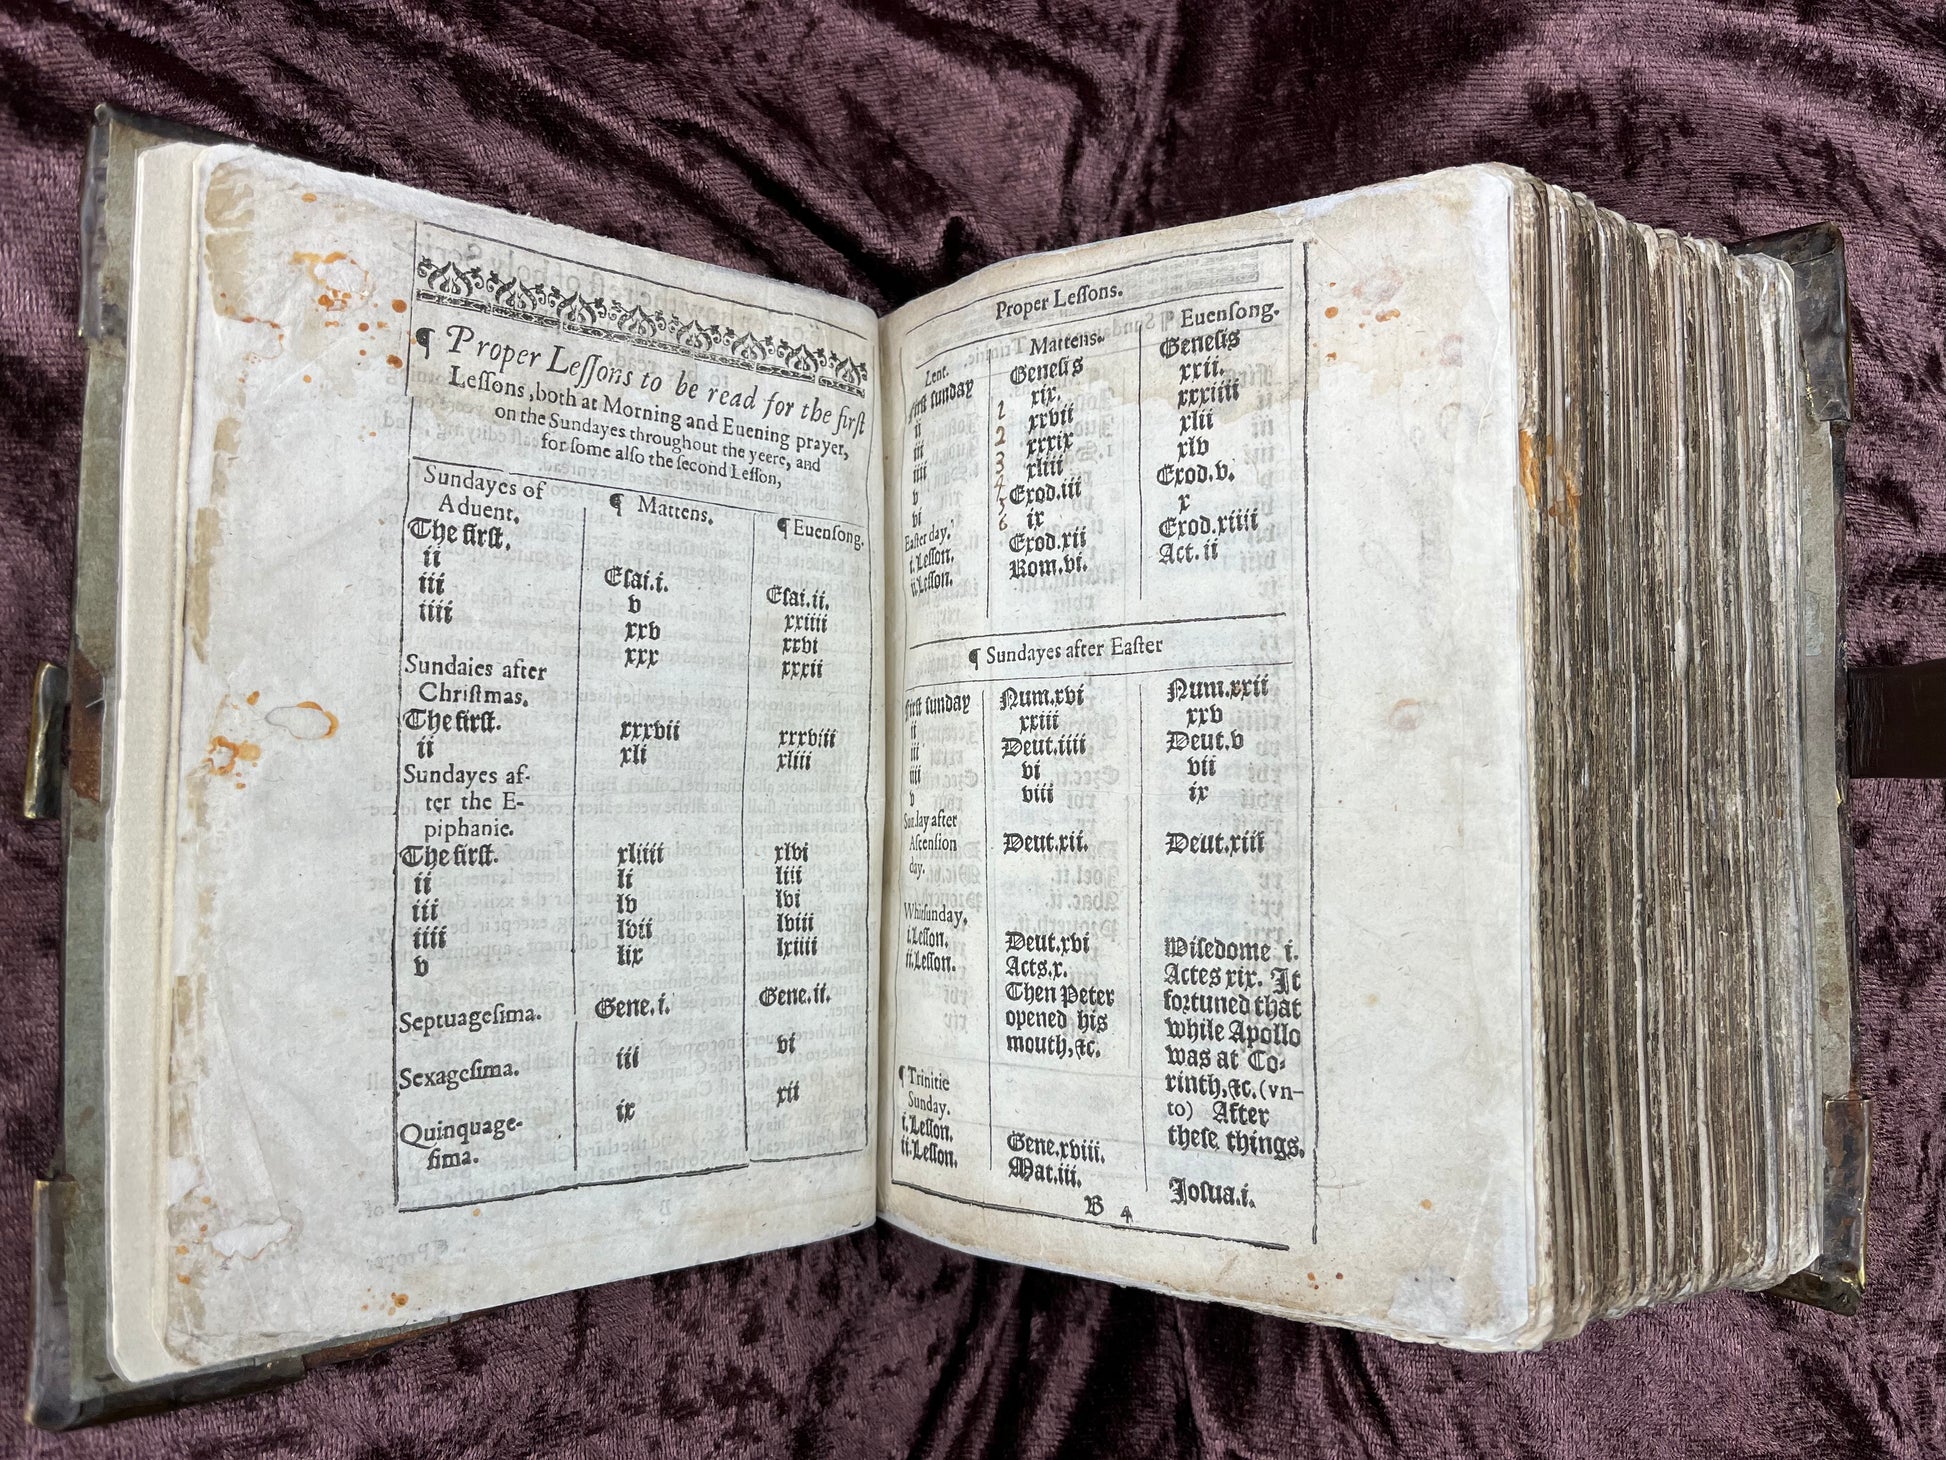 ¶ Proper Leſſons to be read for the firſt
Leſſons, both at Morning and Euening prayer,
on the Sundayes throughout the yeere, and
for ſome alſo the ſecond Leſſon,
Sundayes of
Aduent.
¶ Mattens.
¶ Euenſong.
The firſt.
Eſai.i.
Eſai.ii.
ii
v
xxiiii
iii
xxv
xxvi
iiii
xxx
xxxii
Sundaies after
Chriſtmas.
The firſt.
xxxvii
xxxviii
ii
xli
xliii
Sundayes af-
ter the E-
piphanie.
The firſt.
xliiii
xlvi
ii
li
liii
iii
lv
lvi
iiii
lvii
lviii
v
lix
lxiiii
Septuageſima.
Gene.i.
Gene.ii.
Sexageſima.
iii
vi
Quinquage-
ſima.
ix
xii
Proper Leſſons.
Lent.
Mattens.
¶ Euenſong.
Firſt ſunday
Geneſis
xix.
Geneſis
xxii.
ii
1
xxvii
xxxiiii
iii
2
xxxix
xlii
iiii
3
xliii
xlv
v
4
Exod.iii
Exod.v.
vi
5
ix
x
6
Eaſter day.
i.Leſſon.
Exod.xii
Exod.xiiii
ii.Leſſon.
Rom.vi.
Act.ii
¶ Sundayes after Eaſter
Firſt ſunday
Num.xvi
Num.xxii
ii
xxiii
xxv
iii
Deut.iiii
Deut.v
iiii
vi
vii
v
viii
ix
Sunday after
Aſcenſion
day.
Deut.xii.
Deut.xiii
Whitſunday.
i.Leſſon.
Deut.xvi
Wiſedome i.
ii.Leſſon.
Acts.x.
Then Peter
opened his
mouth,&c.
Actes xix. It
fortuned that
while Apollo
was at Co-
rinth,&c.(vn-
to) After
theſe things.
¶ Trinitie
Sunday.
i.Leſſon.
Gene.xviii.
Joſua.i.
ii.Leſſon.
Mat.iii.
B 4